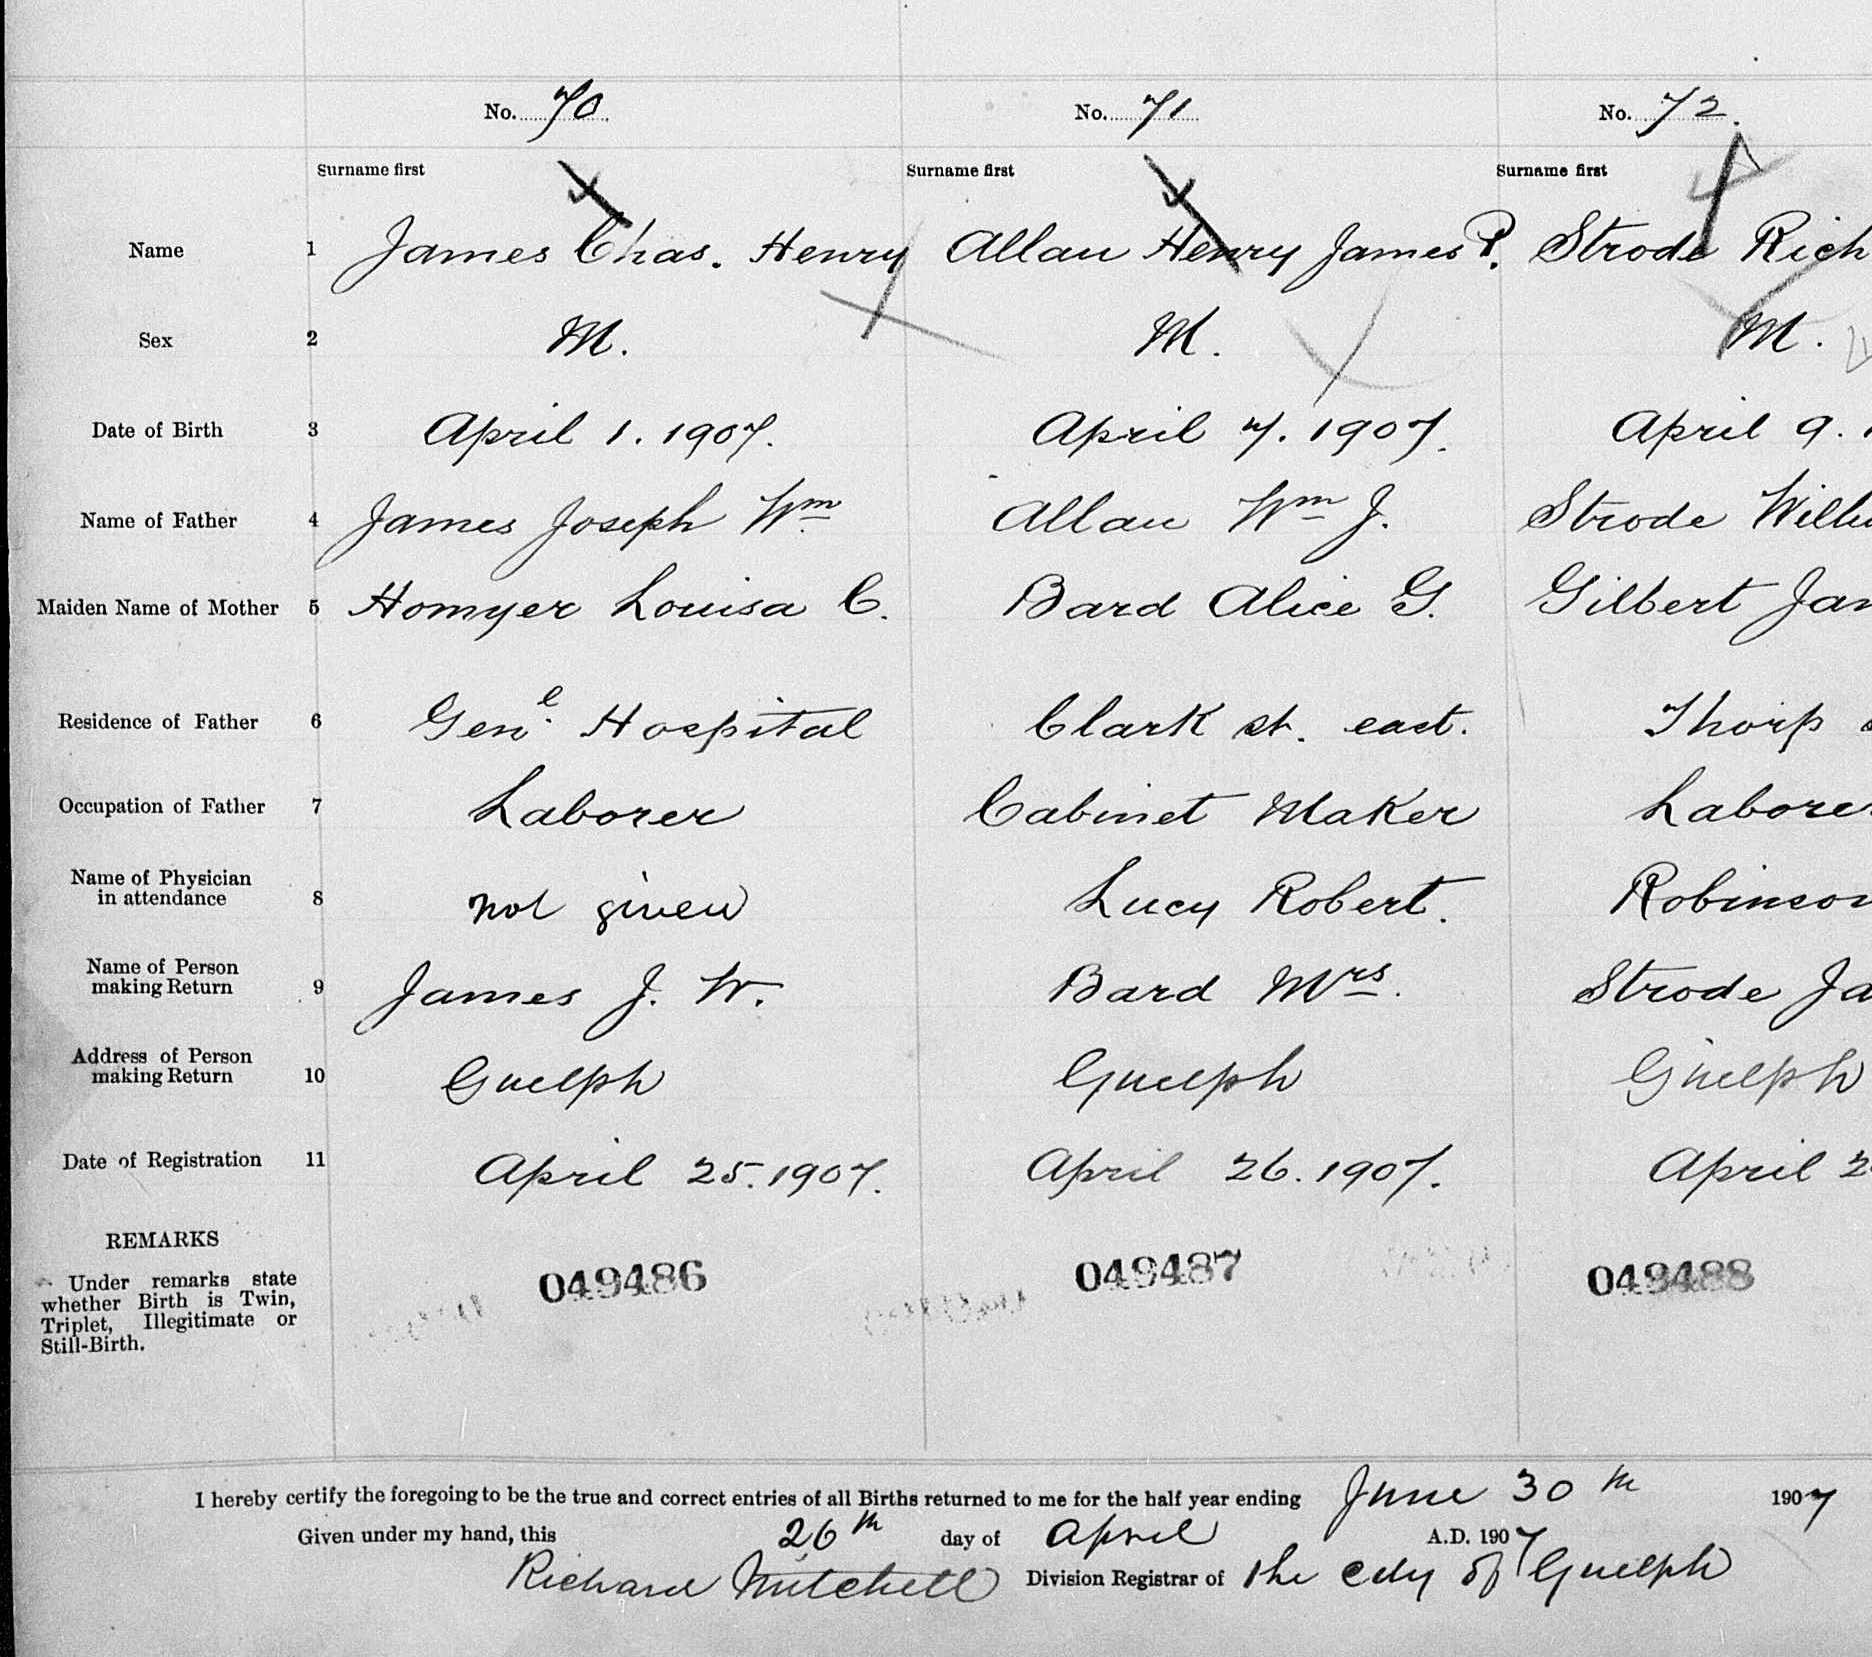 No. 70 No. 71 No. 72.
Surname first Surname first Surname first
Name 1 James Chas. Henry Allan Henry James P. Strode Rich
Sex 2 M. M. M.
Date of Birth 3 April 1. 1907. April 7. 1907. April 9.
Name of Father 4 James Joseph Wm. Allan Wm J. Strode
Maiden Name of Mother 5 Homyer Louisa C. Bard Alice G. Gilbert Jan
Residence of Father 6 Genl. Hospital Clark st. east. Thorp
Occupation of Father 7 Laborer Cabinet Maker Laborer
Name of Physician
in attendance 8 not given Lucy Robert. Robinson
Name of Person
making Return 9 James J. W. Bard Mrs. Strode Ja
Address of Person
making Return 10 Guelph Guelph Guelph
Date of Registration 11 April 25. 1907. April 26. 1907. April 2
REMARKS
049486 049487 049488
Under remarks state
whether Birth is Twin,
Triplet, Illegitimate or
Still-Birth.
I hereby certify the foregoing to be the true and correct entries of all Births returned to me for the half year ending June 30th 1907
Given under my hand, this 26th day of April A.D. 1907
Richard Mitchell Division Registrar of the City of Guelph